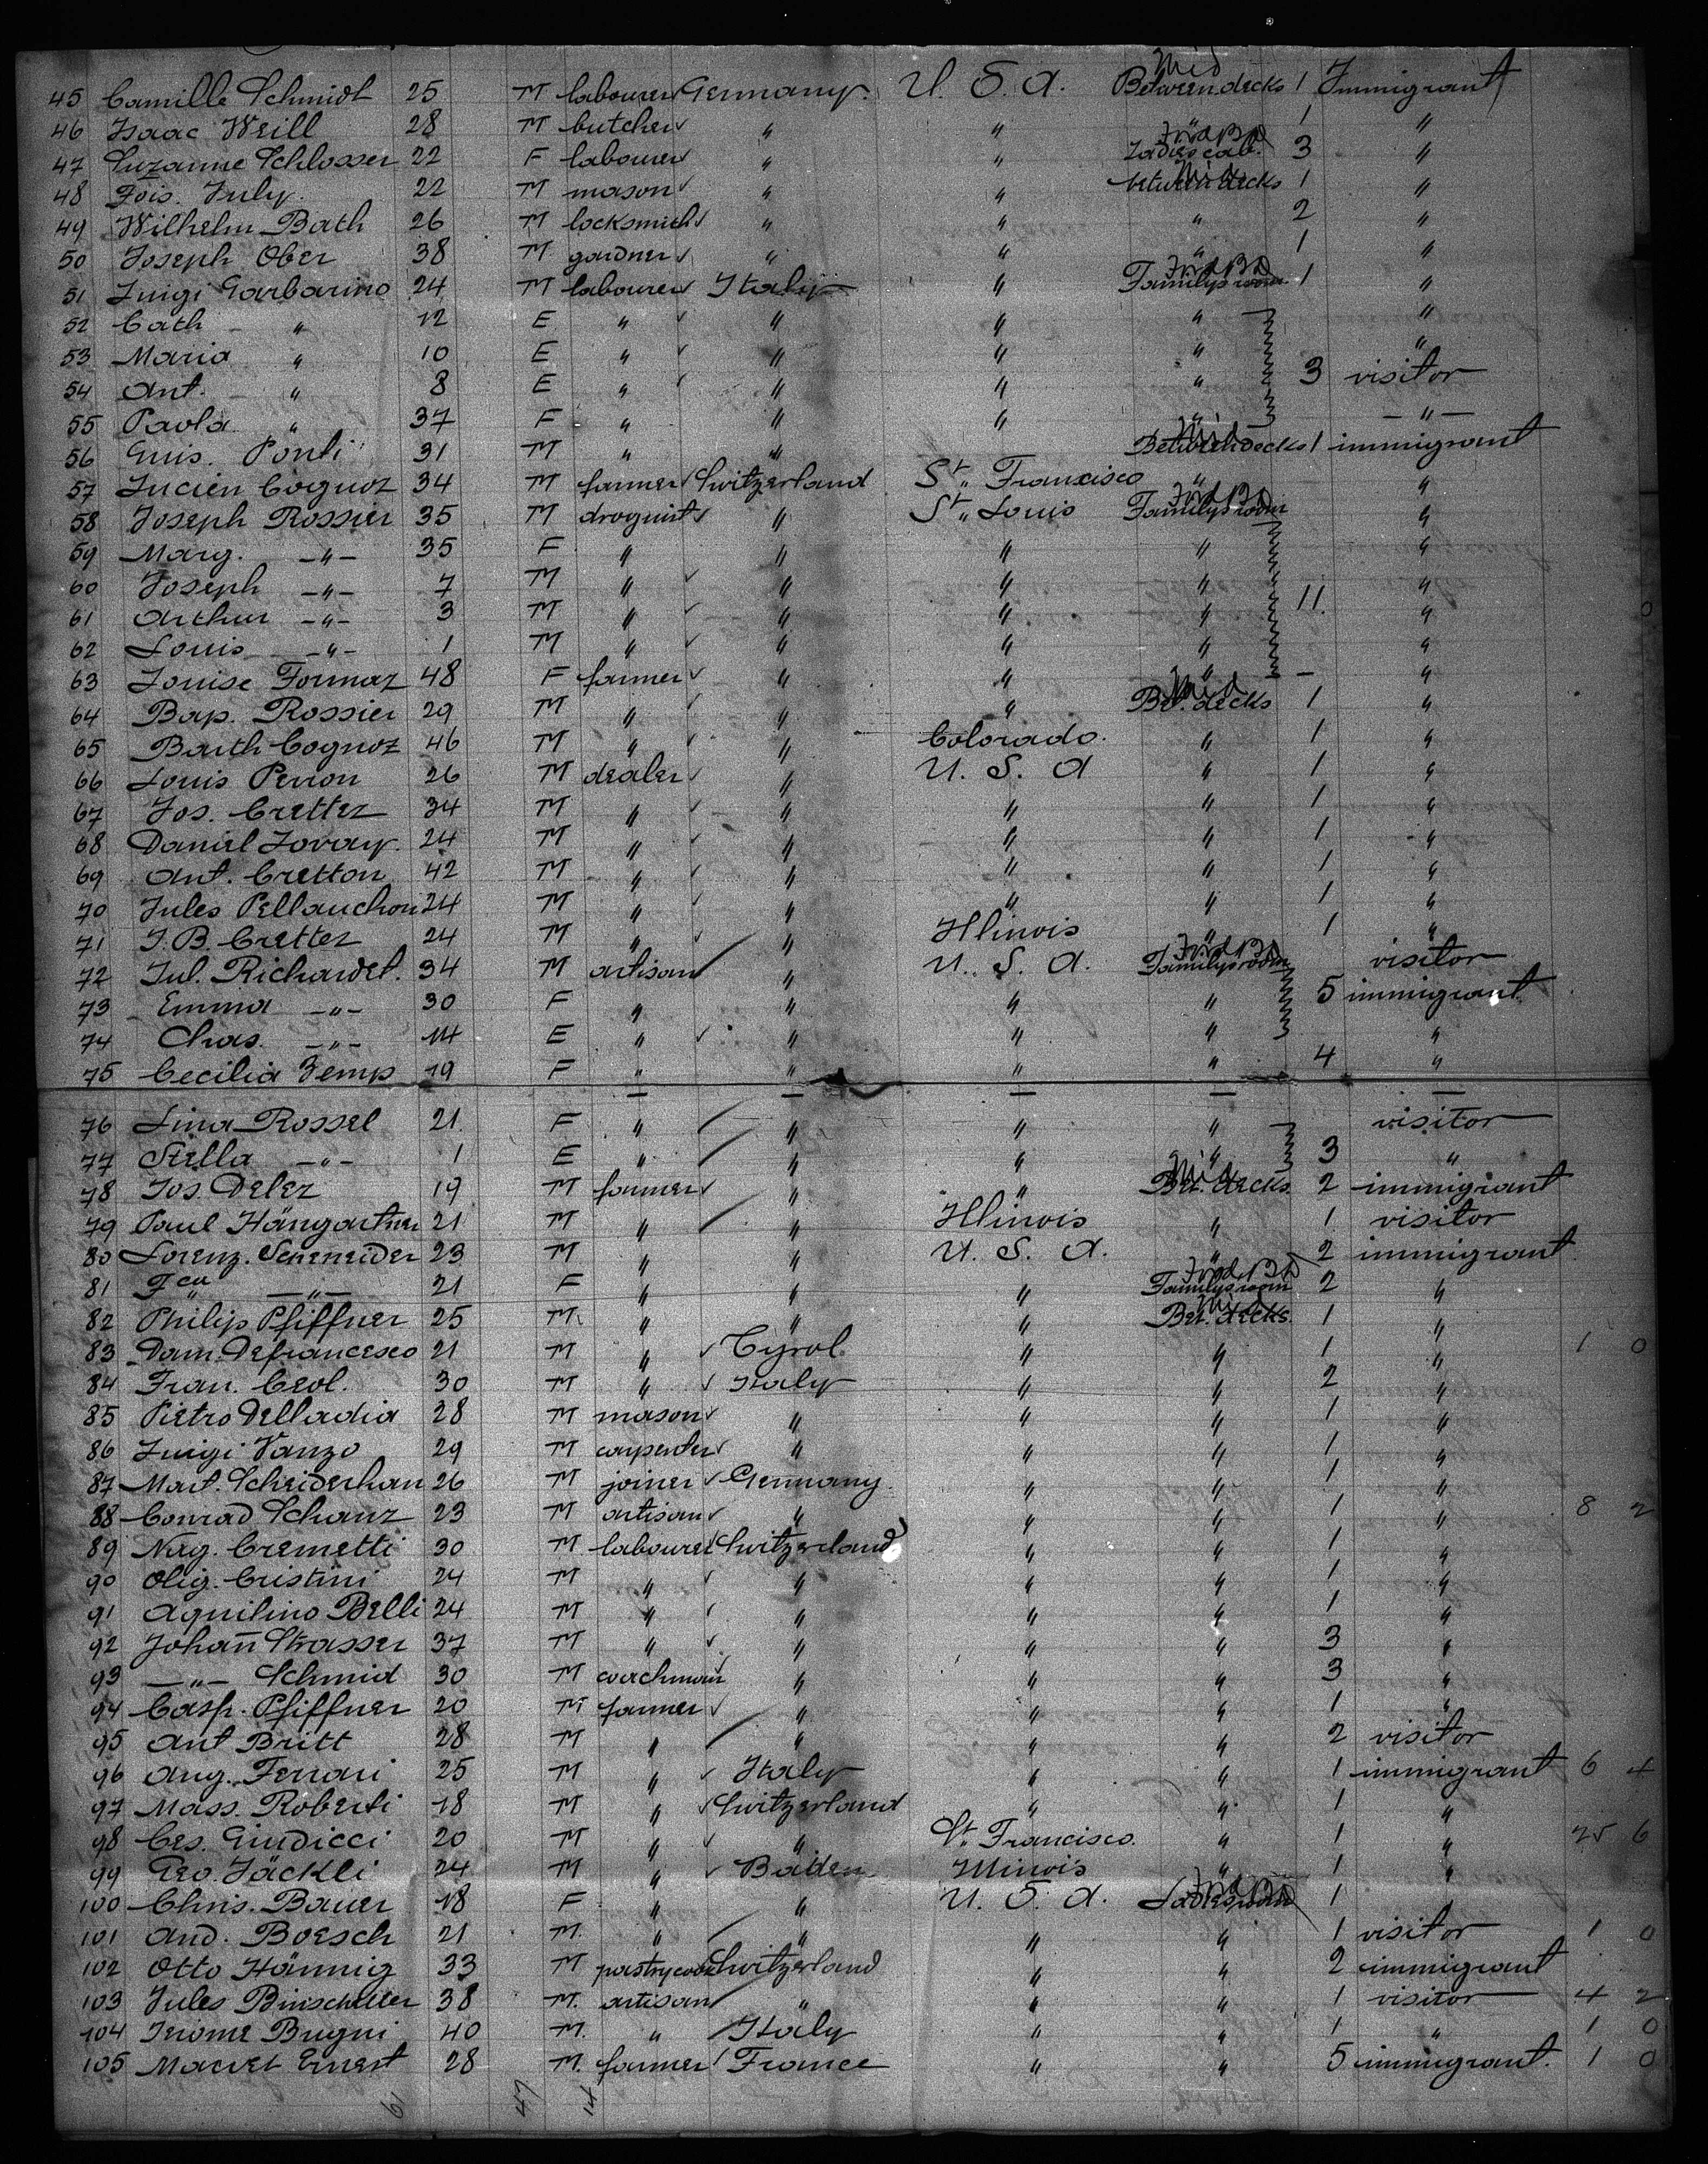 45 Camille Schmidt 25 M labourer Germany. U. S. A. Mid Between decks 1 Immigrant
46 Isaac Weill 28 M butcher " " 1 "
47 Suzanne Schlosser 22 F labourer " " Ladies cab. 3 "
48 Fois. July. 22 M mason " " Mid between decks 1 "
49 Wilhelm Bath 26 M locksmith " " " 2 "
50 Joseph Ober 38 M gardner " " " 1 "
51 Luigi Garbarino 24 M labourer Italy " Family room 1 "
52 Cath " 12 E " " " " "
53 Maria " 10 E " " " " "
54 Ant. " 8 E " " " " 3 visitor
55 Paola " 37 F " " " " - " -
56 Guis. Ponti 31 M " " Mid Between decks 1 immigrant
57 Lucien Cognoz 34 M farmer Switzerland St. Francisco " "
58 Joseph Rossier 35 M droguist " St. Louis Family room "
59 Marg. - " - 35 F " " " " "
60 Joseph - " - 7 M " " " " "
61 Arthur - " - 3 M " " " " 11. "
62 Louis - " - 1 M " " " " "
63 Louise Formaz 48 F farmer " " " - "
64 Bap. Rossier 29 M " " " Mid Be. decks 1 "
65 Barth Cognoz 46 M " " Colorado. " 1 "
66 Louis Perron 26 M dealer " U. S. A " 1 "
67 Jos. Crettez 34 M " " " " 1 "
68 Daniel Lovay. 24 M " " " " 1 "
69 Ant. Cretton 42 M " " " " 1 "
70 Jules Pellauchon 24 M " " " " 1 "
71 J. B. Crettez 24 M " " Illinois " 1 "
72 Jul. Richardet. 34 M artisan " U. S. A. Family room visitor
73 Emma - " - 30 F " " " " 5 immigrant
74 Chas. - " - 14 E " " " " "
75 Cecilia Zemp 19 F " " " " 4 "
76 Lina Rossel 21. F " " " " visitor
77 Stella - " - 1 E " " " " 3 "
78 Jos. Delez 19 M farmer " " Mid Bet. decks. 2 immigrant
79 Paul Hängartner 21 M " " Illinois " 1 visitor
80 Lorenz. Scheneider 23 M " " U. S. A. " 2 immigrant
81 Fca - " - 21 F " " " Family room 2 "
82 Philip Pfiffner 25 M. " " " Mid Bet. decks. 1 "
83 Dam. Defrancesco 21 M " Tyrol. " " 1 " 1 0
84 Fran. Ceol. 30 M " Italy " " 2 "
85 Pietro Delladia 28 M mason " " " 1 "
86 Luigi Vanzo 29 M carpenter " " " 1 "
87 Mart. Scheiderhan 26 M joiner Germany. " " 1 "
88 Conrad Schanz 23 M artisan " " " 1 " 8 2
89 Cremetti 30 M. labourer Switzerland " " 1 "
90 Olig. Cristini 24 M " " " " 1 "
91 Aquilino Belli 24 M " " " " 1 "
92 Johann Strasser 37 M " " " " 3 "
93 - " - Schmid 30 M coachman " " " 3 "
94 Casp. Pfiffner 20 M farmer " " " 1 "
95 Ant Britt 28 M " " " " 2 visitor
96 Aug. Ferrari 25 M " Italy " " 1 immigrant 6 4
97 Mass. Roberti 18 M " Switzerland " " 1 "
98 Ces. Giudicci 20 M " " St. Francisco. " 1 " 25 6
99 Geo. Jäckli 24 M " Baden Illinois " 1 "
100 Chris. Bauer 18 F " " U. S. A. Ladiesroom 1 "
101 And. Boesch 21 M. " " " " 1 visitor 1 0
102 Otto Hännig 33 M pastrycook Switzerland " " 2 immigrant
103 Jules Binschedler 38 M. artisan " " " 1 visitor 4 2
104 Jerome Bugni 40 M. " Italy " " 1 " 1 0
105 Ernest 28 M. farmer France " " 5 immigrant. 1 0
47 14